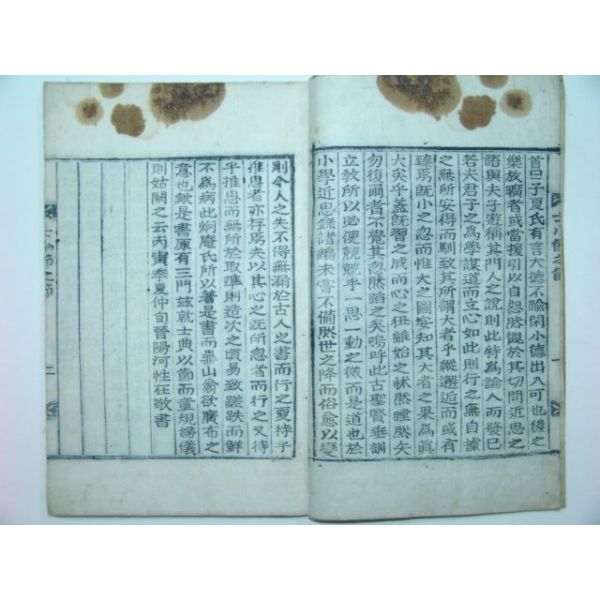 首曰子夏氏有言大德不踰閑小德出入可也後之
樂放曠者或當援引以自恕然觀於其切問近思之
語與夫子遊稱其門人之說則此特為論人而發已
若夫君子之為學謀道而立心如此則行之無自據
之無所安得而馴致其所謂大者乎縱邂逅而或有
臻焉旣小之忽而惟大之圖安知其大者之果為眞
大矣乎蓋旣習之成而心之狃雖始之怵然瞠然矢
勿復爾者不覺其忽然蹈之矣嗚呼此古聖賢垂訓
立敎所以必使兢兢乎一思一動之微而是道也於
小學近思錄譜編未嘗不備然世之降而俗愈以變
則今人之失不得無漏於古人之書而行之夏待乎
推思者亦存焉夫以其心之旣所忽者而行之又待
乎推思而無所於取準則造次之頃易致蹉跌而鮮
不為病此炯庵氏所以著是書而畢山翁欲廣布之
意也歟是書原有三門玆就士典以節而童規
則姑闕之云丙寅季夏仲旬晉陽河性在敬書